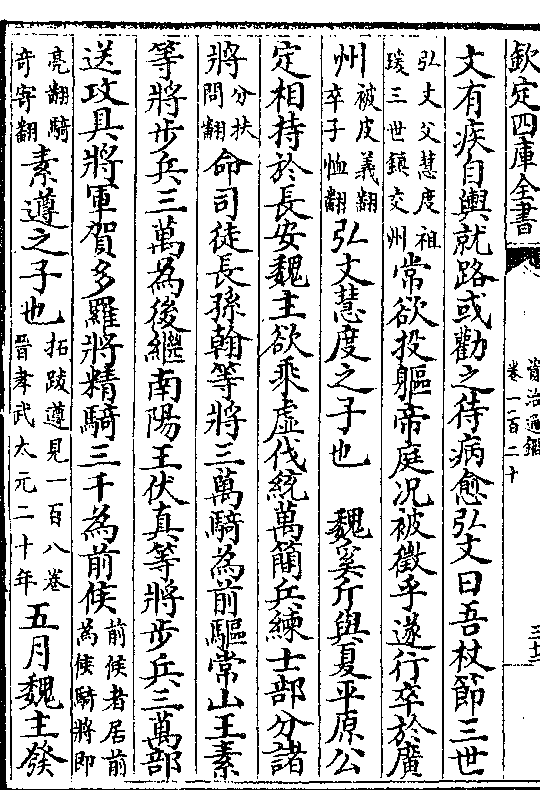 欽定四庫全書
資治通鑑
卷一百二十
文有疾自輿就路或勸之待病愈弘文曰吾杖節三世
弘文父慧度祖
瑗三世鎮交州
常欲投軀帝庭况被徵乎遂行卒於廣
州
被皮義翻
卒子恤翻
弘文慧度之子也 魏奚斤與夏平原公
定相持於長安魏主欲乘虚伐統萬簡兵練士部分諸
將
分扶
問翻
命司徒長孫翰等將三萬騎為前驅常山王素
等將步兵三萬為後繼南陽王伏真等將步兵三萬部
送攻具將軍賀多羅將精騎三千為前候
前候者居前
為候騎將即
亮翻騎
奇寄翻
素遵之子也
拓跋遵見一百八卷
晉孝武太元二十年
五月魏主發